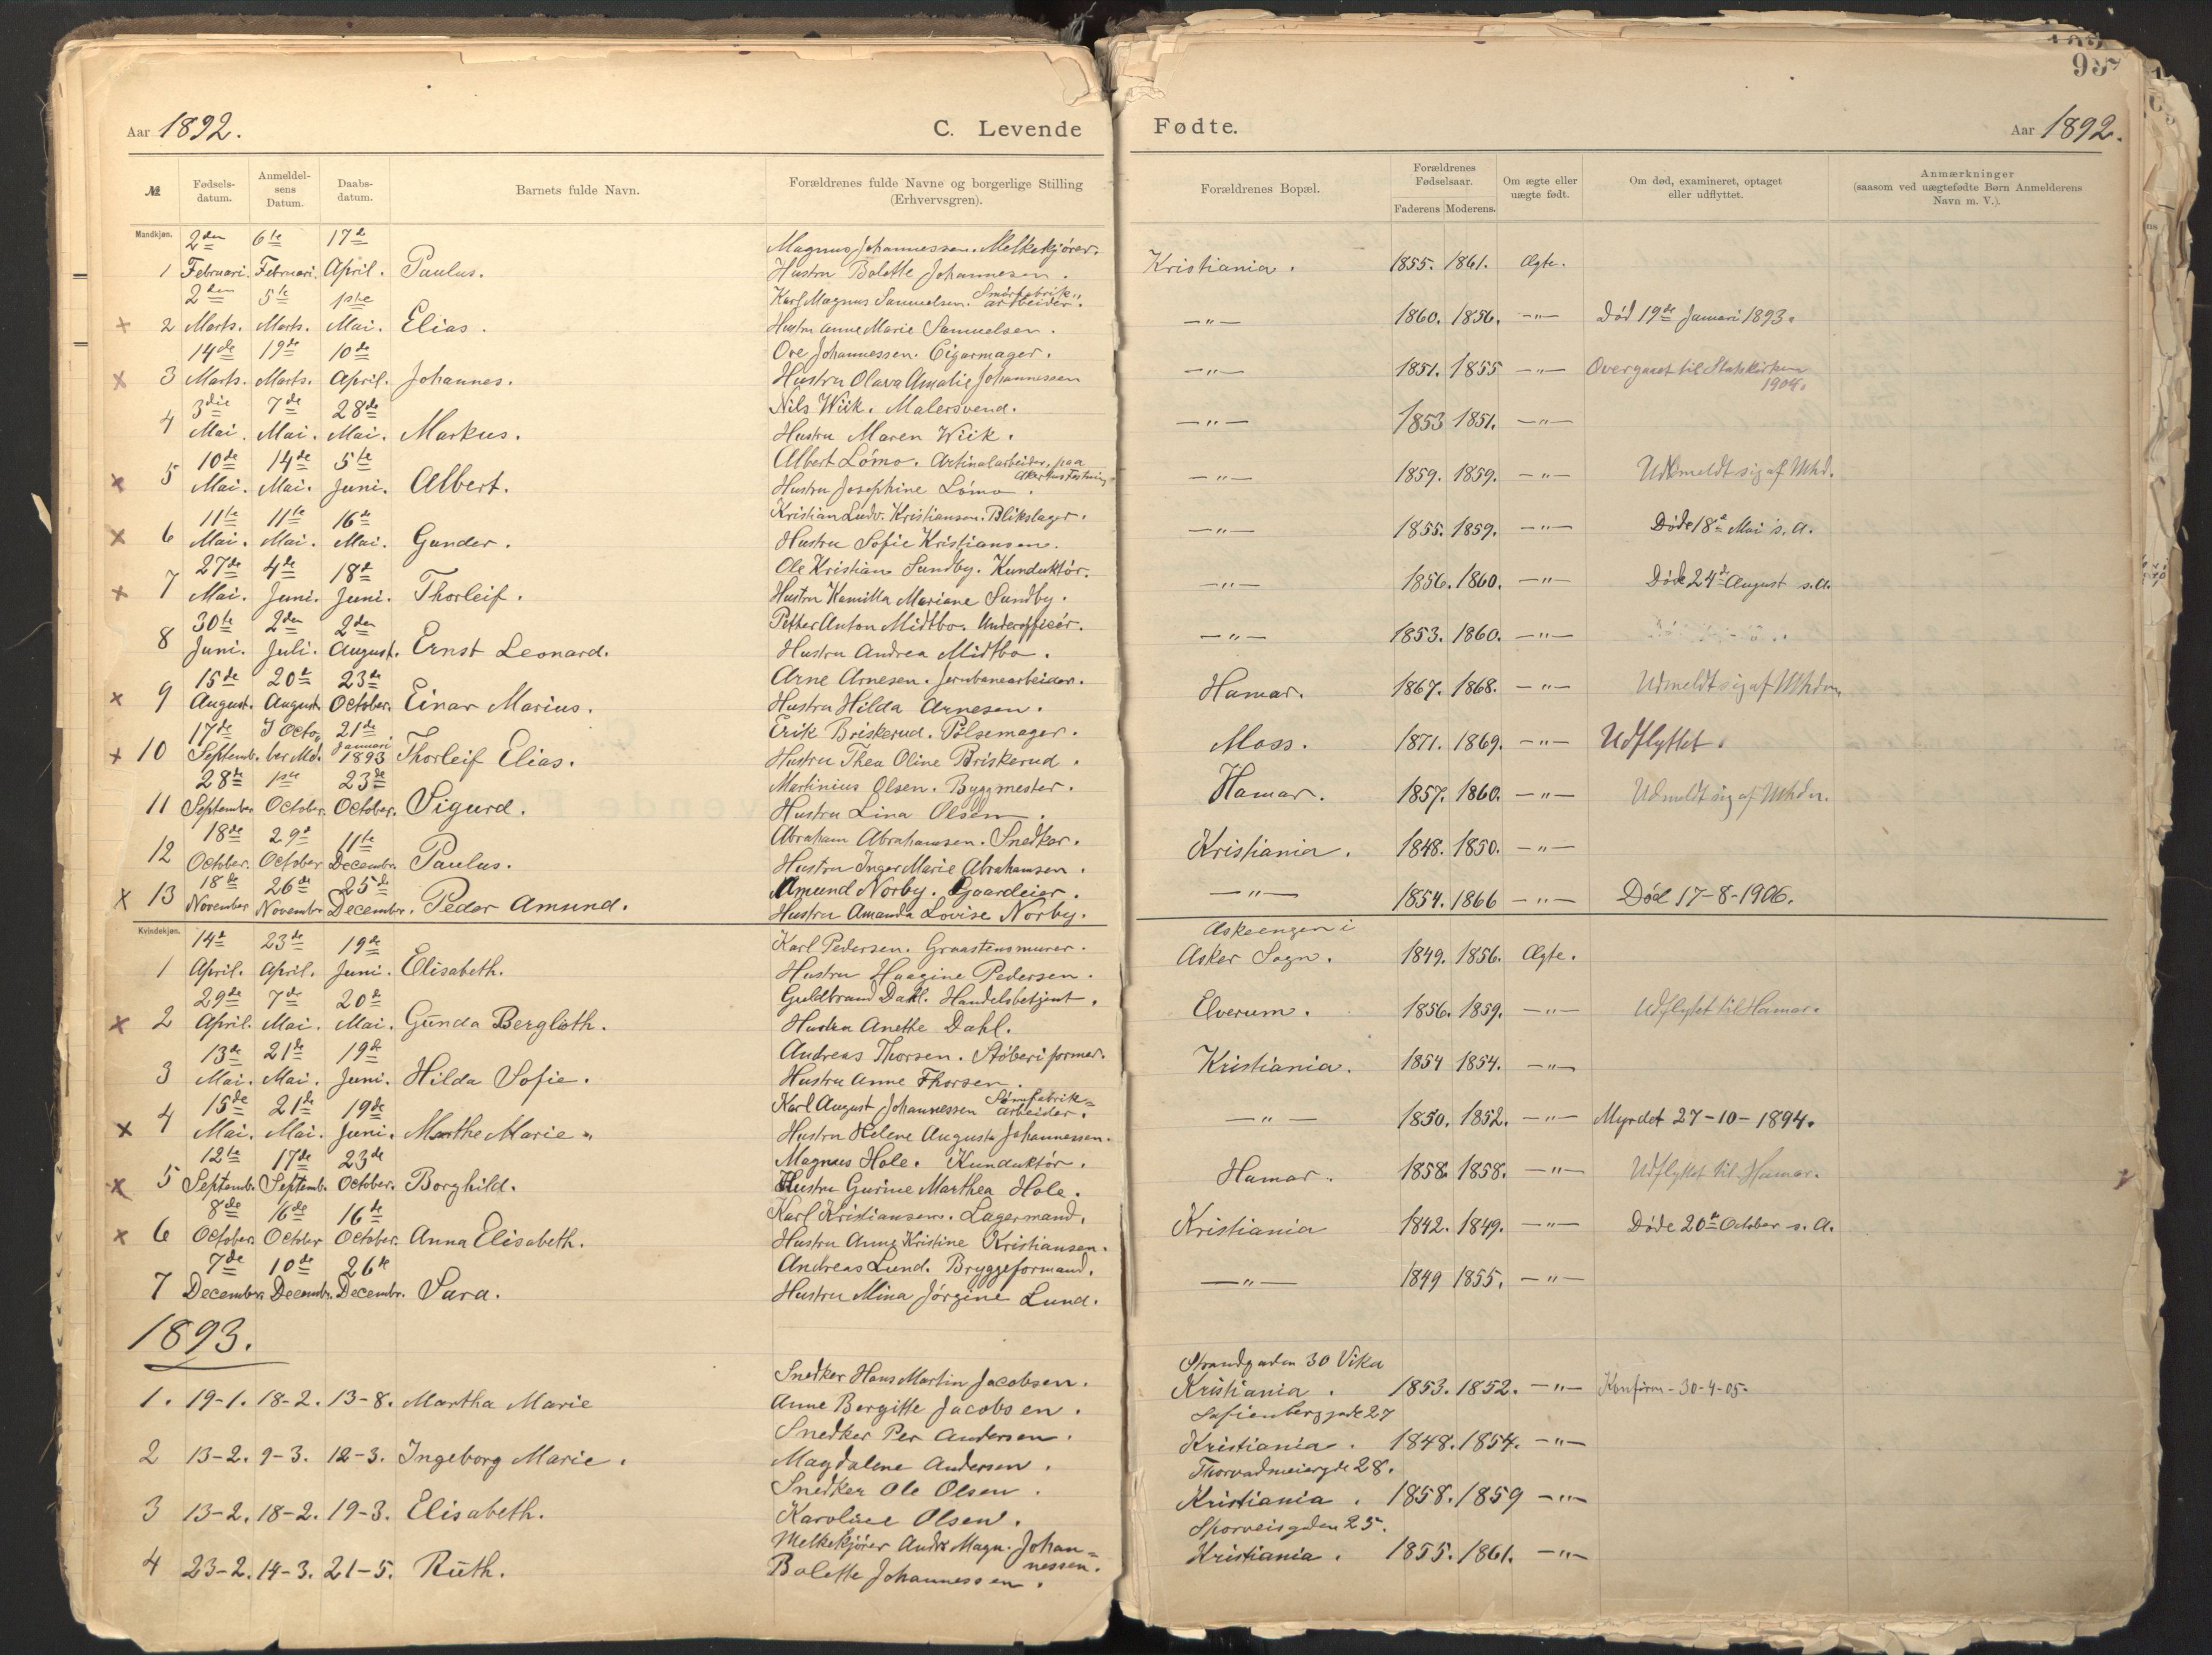 95
Aar 1892.
C. Levende Fødte.
Aar 1892.
№
Fødsels-datum.
Anmeldelsens Datum.
Daabs-datum.
Barnets fulde Navn.
Forældrenes fulde Navne og borgerlige Stilling (Erhvervsgren).
Forældrenes Bopæl.
Forældrenes Fødselsaar.
Faderens Moderens.
Om ægte eller uægte født.
Om død, examineret, optaget eller udflyttet.
Anmærkninger (saasom ved uægtefødte Børn Anmelderens Navn m. V.).
Mandkjøn.
2den 6te 17de Magnus Johannessen. Melkekjører.
1 Februari. Februari. April. Paulus. Hustru Bolette Johannesen. Kristiania. 1855. 1861. Ægte.
2den 5te 1ste Karl Magnus Samuelsen. Smørfabrik" arbeider.
x 2 Marts. Marts. Mai. Elias. Hustru Anne Marie Samuelsen. —"— 1860. 1856. —"— Død 19de Januari 1893.
14de 19de 10de Ove Johannessen. Cigarmager.
x 3 Marts. Marts. April. Johannes. Hustru Olava Amalie Johannessen —"— 1851. 1855 —"— Overgaaet til Statskirken 1904.
3die 7de 28de Nils Wiik. Malersvend.
4 Mai. Mai. Mai. Markus. Hustru Maren Wiik. —"— 1853 1851. —"—
10de 14de 5te Albert Lömo. Artinalarbeider, paa Akerhus Fæstning
x 5 Mai. Mai. Juni. Albert. Hustru Josephine Lömo. —"— 1859. 1859. —"— Udmeldt sig af Mhd.
11te 11te 16de Kristian Ludv. Kristiansen. Blikslager.
x 6 Mai. Mai. Mai. Gunder. Hustru Sofie Kristiansen. —"— 1855. 1859. —"— Døde 18de Mai s. A.
27de 4de 18de Ole Kristian Sundby. Kunduktör.
x 7 Mai. Juni. Juni. Thorleif. Hustru Kamilla Mariane Sundby. —"— 1856. 1860. —"— Døde 24de August s.A.
30te 2den 2den Petter Anton Midtbo. Underofficér.
8 Juni. Juli. August. Ernst Leonard. Hustru Andrea Midtbo. —"— 1853. 1860. —"—
15de 20de 23de Arne Arnesen. Jernbanearbeider.
x 9 August. August. October. Einar Marius. Hustru Hilda Arnesen. Hamar. 1867. 1868. —"— Udmeldt sig af Mhdn.
17de I Octo 21de Erik Briskerud. Pølsemager.
x 10 Septemb. ber Md. Januari 1893 Thorleif Elias. Hustru Thea Oline Briskerud. Moss. 1871. 1869. —"— Udflyttet.
28de 1ste 23de Martinius Olsen. Byggmester.
11 September October. October. Sigurd. Hustru Lina Olsen. Hamar. 1857. 1860. —"— Udmeldt sig af Mhdn.
18de 29de 11te Abraham Abrahamsen. Snedker.
12 October. October Decembr. Paulus. Hustru Inger Marie Abrahamsen. Kristiania. 1848. 1850. —"—
18de 26de 25de Amund Norby. Gaardeier.
x 13 November Novembr Decembr. Peder Amund. Hustru Amanda Lovise Norby. —"— 1854. 1866 —"— Død 17-8-1906.
Kvindekjøn.
14de 23de 19de Karl Pedersen. Graastensmurer. Askeengen i
1 April. April. Juni. Elisabeth. Hustru Haagine Pedersen. Asker Sogn. 1849. 1856. Ægte.
29de 7de 20de Guldbrand Dahl. Handelsbetjent.
x 2 April. Mai. Mai. Gunda Bergloth. Hustru Anethe Dahl. Elverum. 1856. 1859. —"— Udflyttet til Hamar.
13de 21de 19de Andreas Thorsen. Støberiformer.
3 Mai. Mai. Juni. Hilda Sofie. Hustru Anne Thorsen. Kristiania. 1854 1854. —"—
15de 21de 19de Karl August Johannessen Sömfabrik= arbeider.
x 4 Mai. Mai. Juni. Marthe Marie. Hustru Helene Augusta Johannessen. —"— 1850. 1852. —"— Myrdet 27-10-1894.
12te 17de 23de Magnus Hole. Kunduktör.
x 5 Septemb. Septemb. October. Borghild. Hustru Gurine Marthea Hole. Hamar. 1858. 1858. —"— Udflyttet til Hamar.
8de 16de 16de Karl Kristiansen. Lagermand.
x 6 October. October October. Anna Elisabeth. Hustru Anne Kristine Kristiansen. Kristiania 1842. 1849. —"— Døde 20de October s. A.
7de 10de 26te Andreas Lund. Bryggeformand.
7 Decembr. Decembr. Decembr. Sara. Hustru Mina Jørgine Lund. —"— 1849 1855. —"—
1893.
Snedker Hans Martin Jacobsen. Strandgaden 30 Vika
1. 19-1. 18-2. 13-8. Martha Marie Anne Bergitte Jacobsen. Kristiania. 1853. 1852. —"— Konfirm- 30-4-05.
Snedker Per Andersen. Sofienberggade 27
2 13-2. 9-3. 12-3. Ingeborg Marie. Magdalene Andersen. Kristiania. 1848. 1854. —"—
Snedker Ole Olsen. Thorvadmeiergde 28.
3 13-2. 18-2. 19-3. Elisabeth. Karoline Olsen. Kristiania. 1858. 1859 —"—
Melkekjører Andr Magn. Johan=nessen. Sporveisgaden 25.
4 23-2. 14-3. 21-5. Ruth. Bolette Johannessen. Kristiania. 1855. 1861. —"—